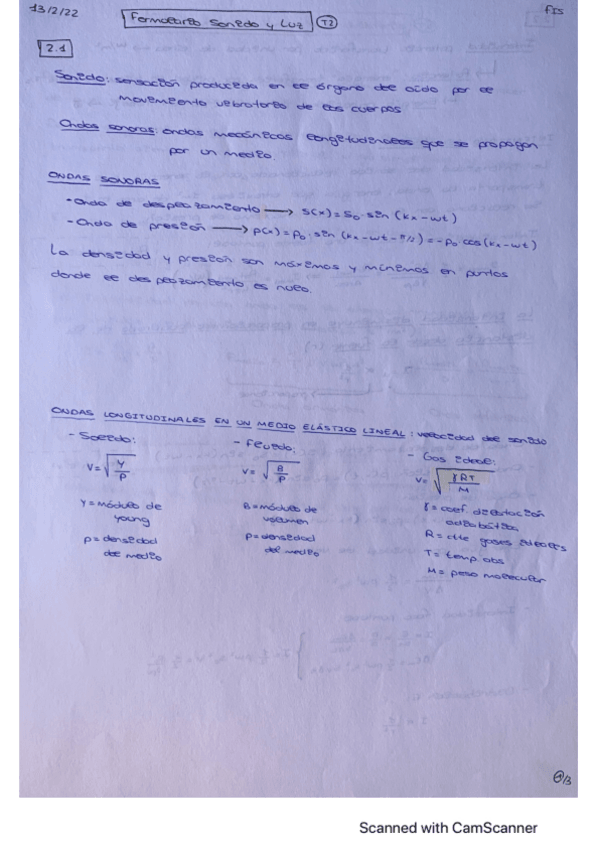 13/2/22 Formulario Sonido y Luz T2 FIS
2.1
Sonido: sensación producida en el órgano del oído por el
movimiento vibratorio de los cuerpos.
Ondas sonoras: ondas mecánicas longitudinales que se propagan
por un medio.
ONDAS SONORAS
- Onda de desplazamiento → s(x) = s₀ · sin (kx - wt)
- Onda de presión → p(x) = p₀ · sin (kx - wt - π/2) = -p₀ cos (kx - wt)
La densidad y presión son máximos y mínimos en puntos
donde el desplazamiento es nulo.
ONDAS LONGITUDINALES EN UN MEDIO ELÁSTICO LINEAL: velocidad del sonido
- Sólido: - Fluido: - Gas ideal:
v = √(Y/ρ) v = √(B/ρ) v = √(γRT/M)
Y = módulo de B = módulo de γ = coef. dilatación
young volumen adiabática
ρ = densidad ρ = densidad R = cte gases ideales
del medio del medio T = temp. abs
M = peso molecular
1/3
Scanned with CamScanner